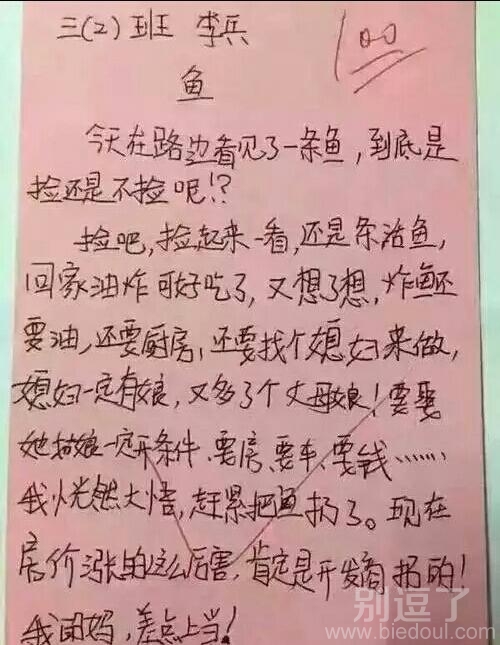 三(2)班 李兵
100
鱼
今天在路边看见了一条鱼,到底是
捡还是不捡呢!?
捡吧,捡起来一看,还是条活鱼,
回家油炸可好吃了,又想了想,炸鱼还
要油,还要厨房,还要找个媳妇来做,
媳妇一定有娘,又多了个丈母娘!要娶
她她娘一定开条件、要房、要车、要钱……
我恍然大悟,赶紧把鱼扔了。现在
房价涨的这么厉害,肯定是开发商扔的!
我的妈,差点上当!
别逗了
www.biedoul.com